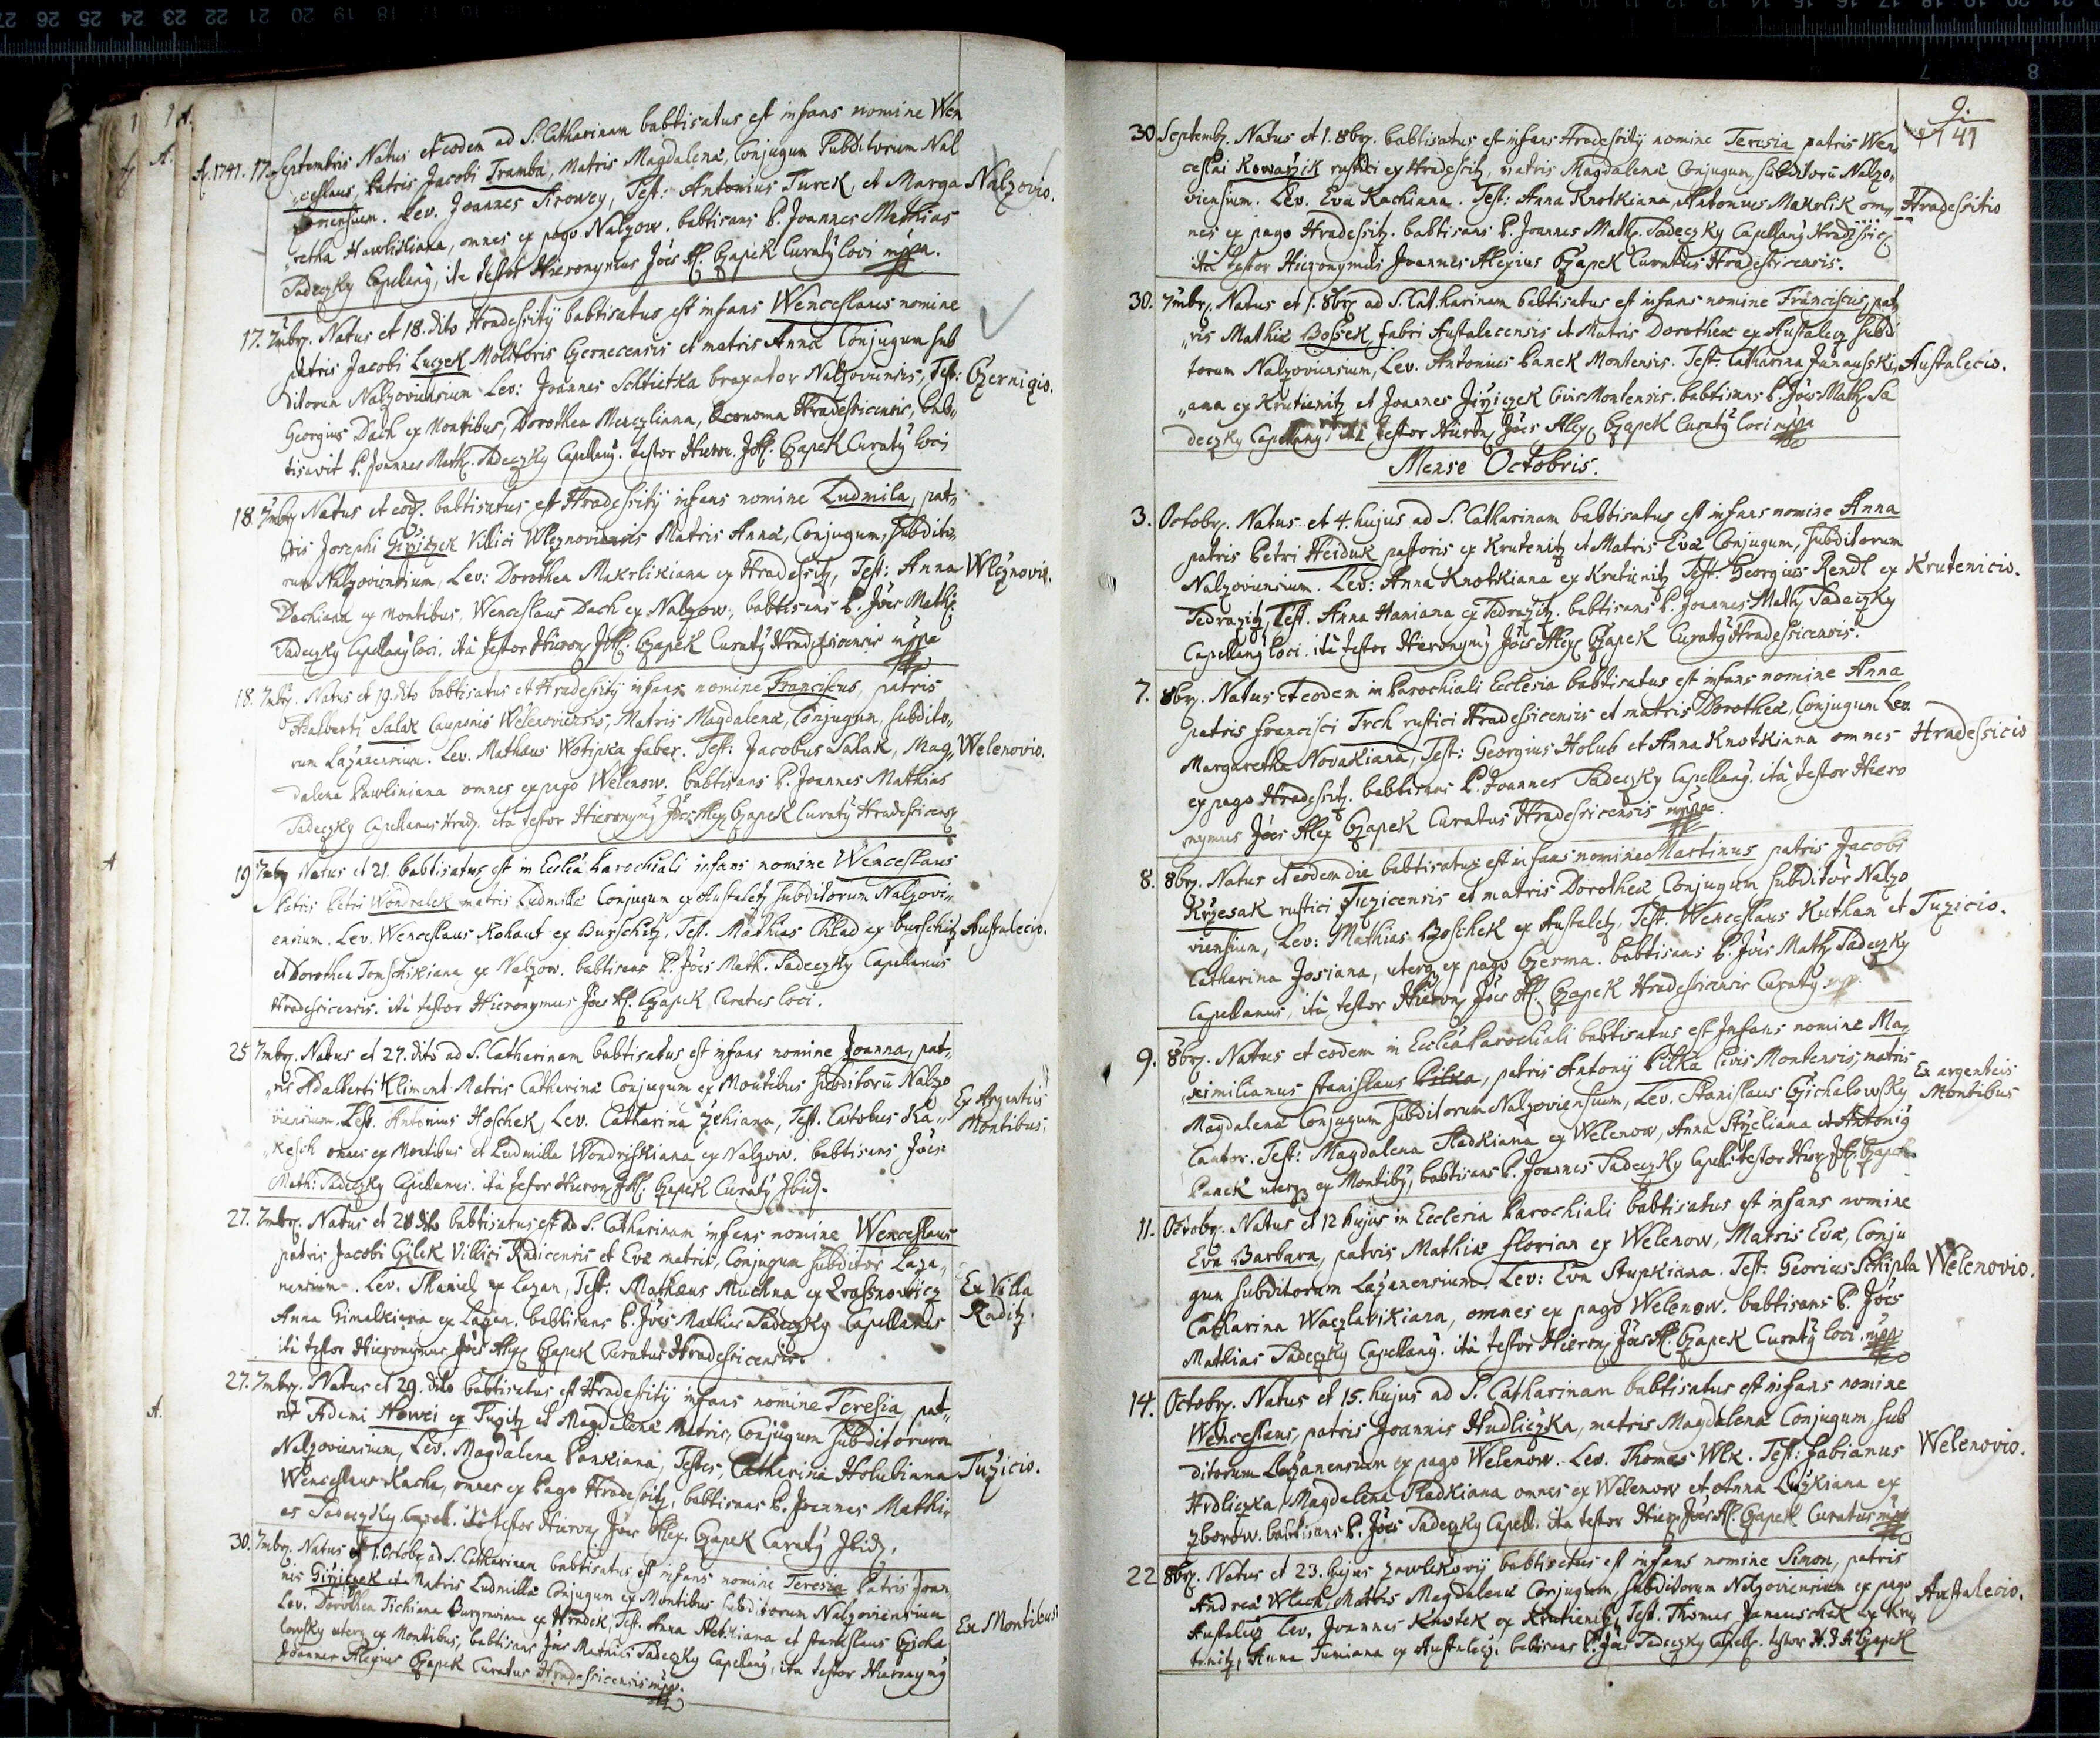 A. 1741. 17. Septembris Natus et eodem ad S. Catharinam babtisatus est infans nomine Wen
ceslaus, Patris Jacobi Tramba, Matris Magdalenæ, Conjugum Subditorum Nal
zoviensium. Lev. Joannes Sirowey, Test: Antonius Turek, et Marga
Nalzovio.
retha Hawlikiana, omnes ex pago Nalzow. babtisans P. Joannes Mathias
Sadeczky Capellanq, ita testor Hieronymus Jões Al. Czapek Curatq loci mppa.
17. 7mbrq. Natus et 18. dito Hradessitij babtisatus est infans Wenceslaus nomine
patris Jacobi Luczek Molitoris Czernecensis et matris Annæ Conjugum sub
ditorum Nalzoviensium Lev: Joannes Schlietka braxator Nalzoviensis, Test:
Czernizio.
Georgius Dach ex Montibus, Dorothea Menczliana, Œconoma Hradessicensis, bab
tisavit P. Joannes Math. Sadeczky Capellanq. testor Hieron. J: A: Czapek Curatq loci
18. 7mbrq Natus et eod. babtisatus est Hradessitij infans nomine Ludmila, pat
ris Josephi Girziczek Villici Wlcznoviensis Matris Annæ, Conjugum, Subdito
rum Nalzoviensium, Lev: Dorothea Makrlikiana ex Hradessitz, Test: Anna
Wlcznovio.
Dachiana ex montibus, Wenceslaus Dach ex Nalzow, babtisans P. Jões Math:
Sadeczky Capellanq loci. ità testor Hieron J: A: Czapek Curatq Hradessicensis mppa
18. 7mbrq. Natus et 19. dito babtisatus est Hradessitij infans nomine Franciscus, patris
Adalberti Salak Cauponis Welenoviensis, Matris Magdalenæ, Conjugum, subdito
rum Lazanensium. Lev. Mathæus Wotipka faber. Test: Jacobus Salak, Mag
Welenovio.
dalena Pawliniana omnes ex pago Welenow. babtisans P. Joannes Mathias
Sadeczky Capellanus Hrad. ita testor Hieronymq Jões Alex Czapek Curatq Hradessicens
19 7mbrq Natus et 21. babtisatus est in Eccliâ Parochiali infans nomine Wenceslaus
Patris Petri Wondralek matris Ludmillæ Conjugum ex Austaletz subditorum Nalzovi
ensium. Lev. Wenceslaus Kohaut ex Burschitz, Test. Mathias Chlad ex burschitz
Austalecio.
et Dorothea Tomschikiana ex Nalzow. babtisans P. Jões Math. Sadeczky Capellanus
Hradessicensis. ità testor Hieronymus Jões Al. Czapek Curatus loci.
25 7mbrq. Natus et 27. dito ad S. Catharinam babtisatus est infans nomine Joanna, pat
ris Adalberti Kliment Matris Catherinæ Conjugum ex Montibus subditorũ Nalzo
viensium. Test. Antonius Hoschek, Lev. Catharina Zehiana, Test. Jacobus Ka
Ex Argenteis
Montibus.
kesch omnes ex Montibus et Ludmilla Wondriskiana ex Nalzow. babtisans Jões
Math: Sadeczky Capellanus. ità testor Hieron J: A: Czapek Curatq Ibid.
27. 7mbrq. Natus et 28 dito babtisatus est ad S. Catharinam infans nomine Wenceslaus
patris Jacobi Gilek Villici Radicensis et Evæ matris, Conjugum subditor Laza
nensium. Lev. Daniel ex Lazan, Test: Mathæus Muchna ex Kwassnowicz
Ex Villa
Raditz.
Anna Gimelkiana ex Lazan. babtisans P. Jões Mathias Sadeczky Capellanus
ità testor Hieronymus Jões Alex Czapek Curatus Hradessicensis.
27. 7mbrq. Natus et 29. dito babtisatus est Hradessitij infans nomine Teresia pat
ris Adami Nowei ex Tuzitz et Magdalenæ Matris, Conjugum Subditorum
Nalzoviensium, Lev. Magdalena Pankiana, Testes, Catherina Holubiana
Tuzicio.
Wenceslaus Kacha, omnes ex Pago Hradessitz, babtisans P. Joannes Mathi
as Sadeczky Capel. ità testor Hieron Jões Alex. Czapek Curatq Ibid.
30. 7mbrq. Natus et 1. Octobr. ad S. Catharinam babtisatus est infans nomine Teresia Patris Joan
nis Girziczek et Matris Ludmillæ Conjugum ex Montibus Subditorum Nalzoviensium
Lev. Dorothea Tichiana Burgraviana ex Hradek, Test. Anna Petriana et Stanislaus Czicha
Ex Montibus
lowsky uterq ex Montibus, babtisans Jões Mathias Sadeczky Capellanq, ita testor Hieronymq
Joannes Alexius Czapek Curatus Hradessicensis mpp.
9.
1741
30 Septembr. Natus et 1. 8brq. babtisatus est infans Hradessitij nomine Teresia patris Wen
ceslai Kowarzik rustici ex Hradessitz, matris Magdalenæ Conjugum, subditorũ Nalzo
viensium. Lev. Eva Kachiana. Test: Anna Knotkiana, Antonius Makrlik om
Hradessitio
nes ex pago Hradessitz. babtisans P. Joannes Math. Sadeczky Capellanq Hradessic
ità testor Hieronymus Joannes Alexius Czapek Curatus Hradessicensis.
30. 7mbrq. Natus et 1. 8brq ad S. Catharinam babtisatus est infans nomine Franciscus, pat
ris Mathiæ Bossek fabri Austalecensis et Matris Dorotheæ ex Austalecz subdi
torum Nalzoviensium, Lev. Antonius Panek Montensis. Test: Catharina Janausski
Austalecio.
ana ex Krutienitz et Joannes Jirziczek Civis Montensis. babtisans P. Jões Math. Sa
deczky Capellanq ità testor Hieron Jões Alex. Czapek Curatq loci mppa
Mense Octobris.
3. Octobr. Natus et 4. hujus ad S. Catharinam babtisatus est infans nomine Anna
patris Petri Heiduk pastoris ex Krutenitz et Matris Evæ Conjugum, Subditorum
Nalzoviensium. Lev: Anna Knotkiana ex Krutienitz Test. Georgius Rendl ex
Krutenicio.
Tedrazitz, Test. Anna Hamiana ex Tedrazitz. babtisans P. Joannes Math. Sadeczky
Capellanq loci. ità testor Hieronymq Jões Alex Czapek Curatq Hradessicensis.
7. 8brq. Natus et eodem in Parochiali Ecclesia babtisatus est infans nomine Anna
patris Francisci Trch rustici Hradessicensis et matris Dorotheæ, Conjugum Lev.
Margaretha Novakiana, Test: Georgius Holub et Anna Knotkiana omnes
Hradessicio
ex pago Hradessitz. babtisans P. Joannes Sadeczky Capellanq. ità testor Hiero
nymus Jões Alex Czapek Curatus Hradessicensis mppa.
8. 8brq. Natus et eodem die babtisatus est infans nomine Martinus patris Jacobi
Krzesak rustici Tuzicensis et matris Dorotheæ Conjugum subditor Nalzo
viensium, Lev: Mathias Boschek ex Austaletz, Test. Wenceslaus Kuthan et
Tuzicio.
Catharina Josiana, uterq ex pago Czerma. babtisans P. Jões Math. Sadeczky
Capellanus, ità testor Hieron Jões Al. Czapek Hradessicensis Curatq mpp.
9. 8brq. Natus et eodem in Eccliâ Parochiali babtisatus est Infans nomine Ma
ximilianus Stanislaus Pitka, patris Antonij Pitka Civis Montensis, matris
Ex argenteis
Montibus
Magdalenæ Conjugum Subditorum Nalzoviensium, Lev. Stanislaus Czichalowsky
Cantor. Test: Magdalena Sladkiana ex Welenow, Anna Strzeliana et Antoniq
Panek uterq ex Montibq, babtisans P. Joannes Sadeczky Capell. testor Hier J: A: Czapek
11. Octobr. Natus et 12 hujus in Ecclesia Parochiali babtisatus est infans nomine
Eva Barbara, patris Mathiæ Florian ex Welenow, Matris Evæ, Conju
gum Subditorum Lazanensium. Lev: Eva Stupkiana. Test: Georius Schipla
Welenovio.
Catharina Waczlavikiana, omnes ex pago Welenow. babtisans P. Jões
Mathias Sadeczky Capellanq. ità testor Hieron Jões Al. Czapek Curatq loci mpp
14. Octobr. Natus et 15. hujus ad S. Catharinam babtisatus est infans nomine
Wenceslaus, patris Joannis Hudliczka, matris Magdalenæ Conjugum, sub
ditorum Lazanensium ex pago Welenow. Lev. Thomas Wlk. Test: Fabianus
Welenovio.
Hrdliczka, Magdalena Sladkiana omnes ex Welenow et Anna Luzkiana ex
Zborow. babtisans P. Jões Sadeczky Capell. ita testor Hier. Jões Al. Czapek Curatus mpp
22 8brq. Natus et 23. hujus Zawlekovij babtisatus est infans nomine Simon, patris
Andreæ Wlach, Matris Magdalenæ Conjugum, subditorum Nalzoviensium ex pago
Austalecio.
Austalicz Lev. Joannes Knotek ex Krutienitz, Test. Thomas Janauschek ex Kru
tenitz, Anna Tumiana ex Austalecz. babtisans P. Jões Sadeczky Capell. testor H. J. A Czapek